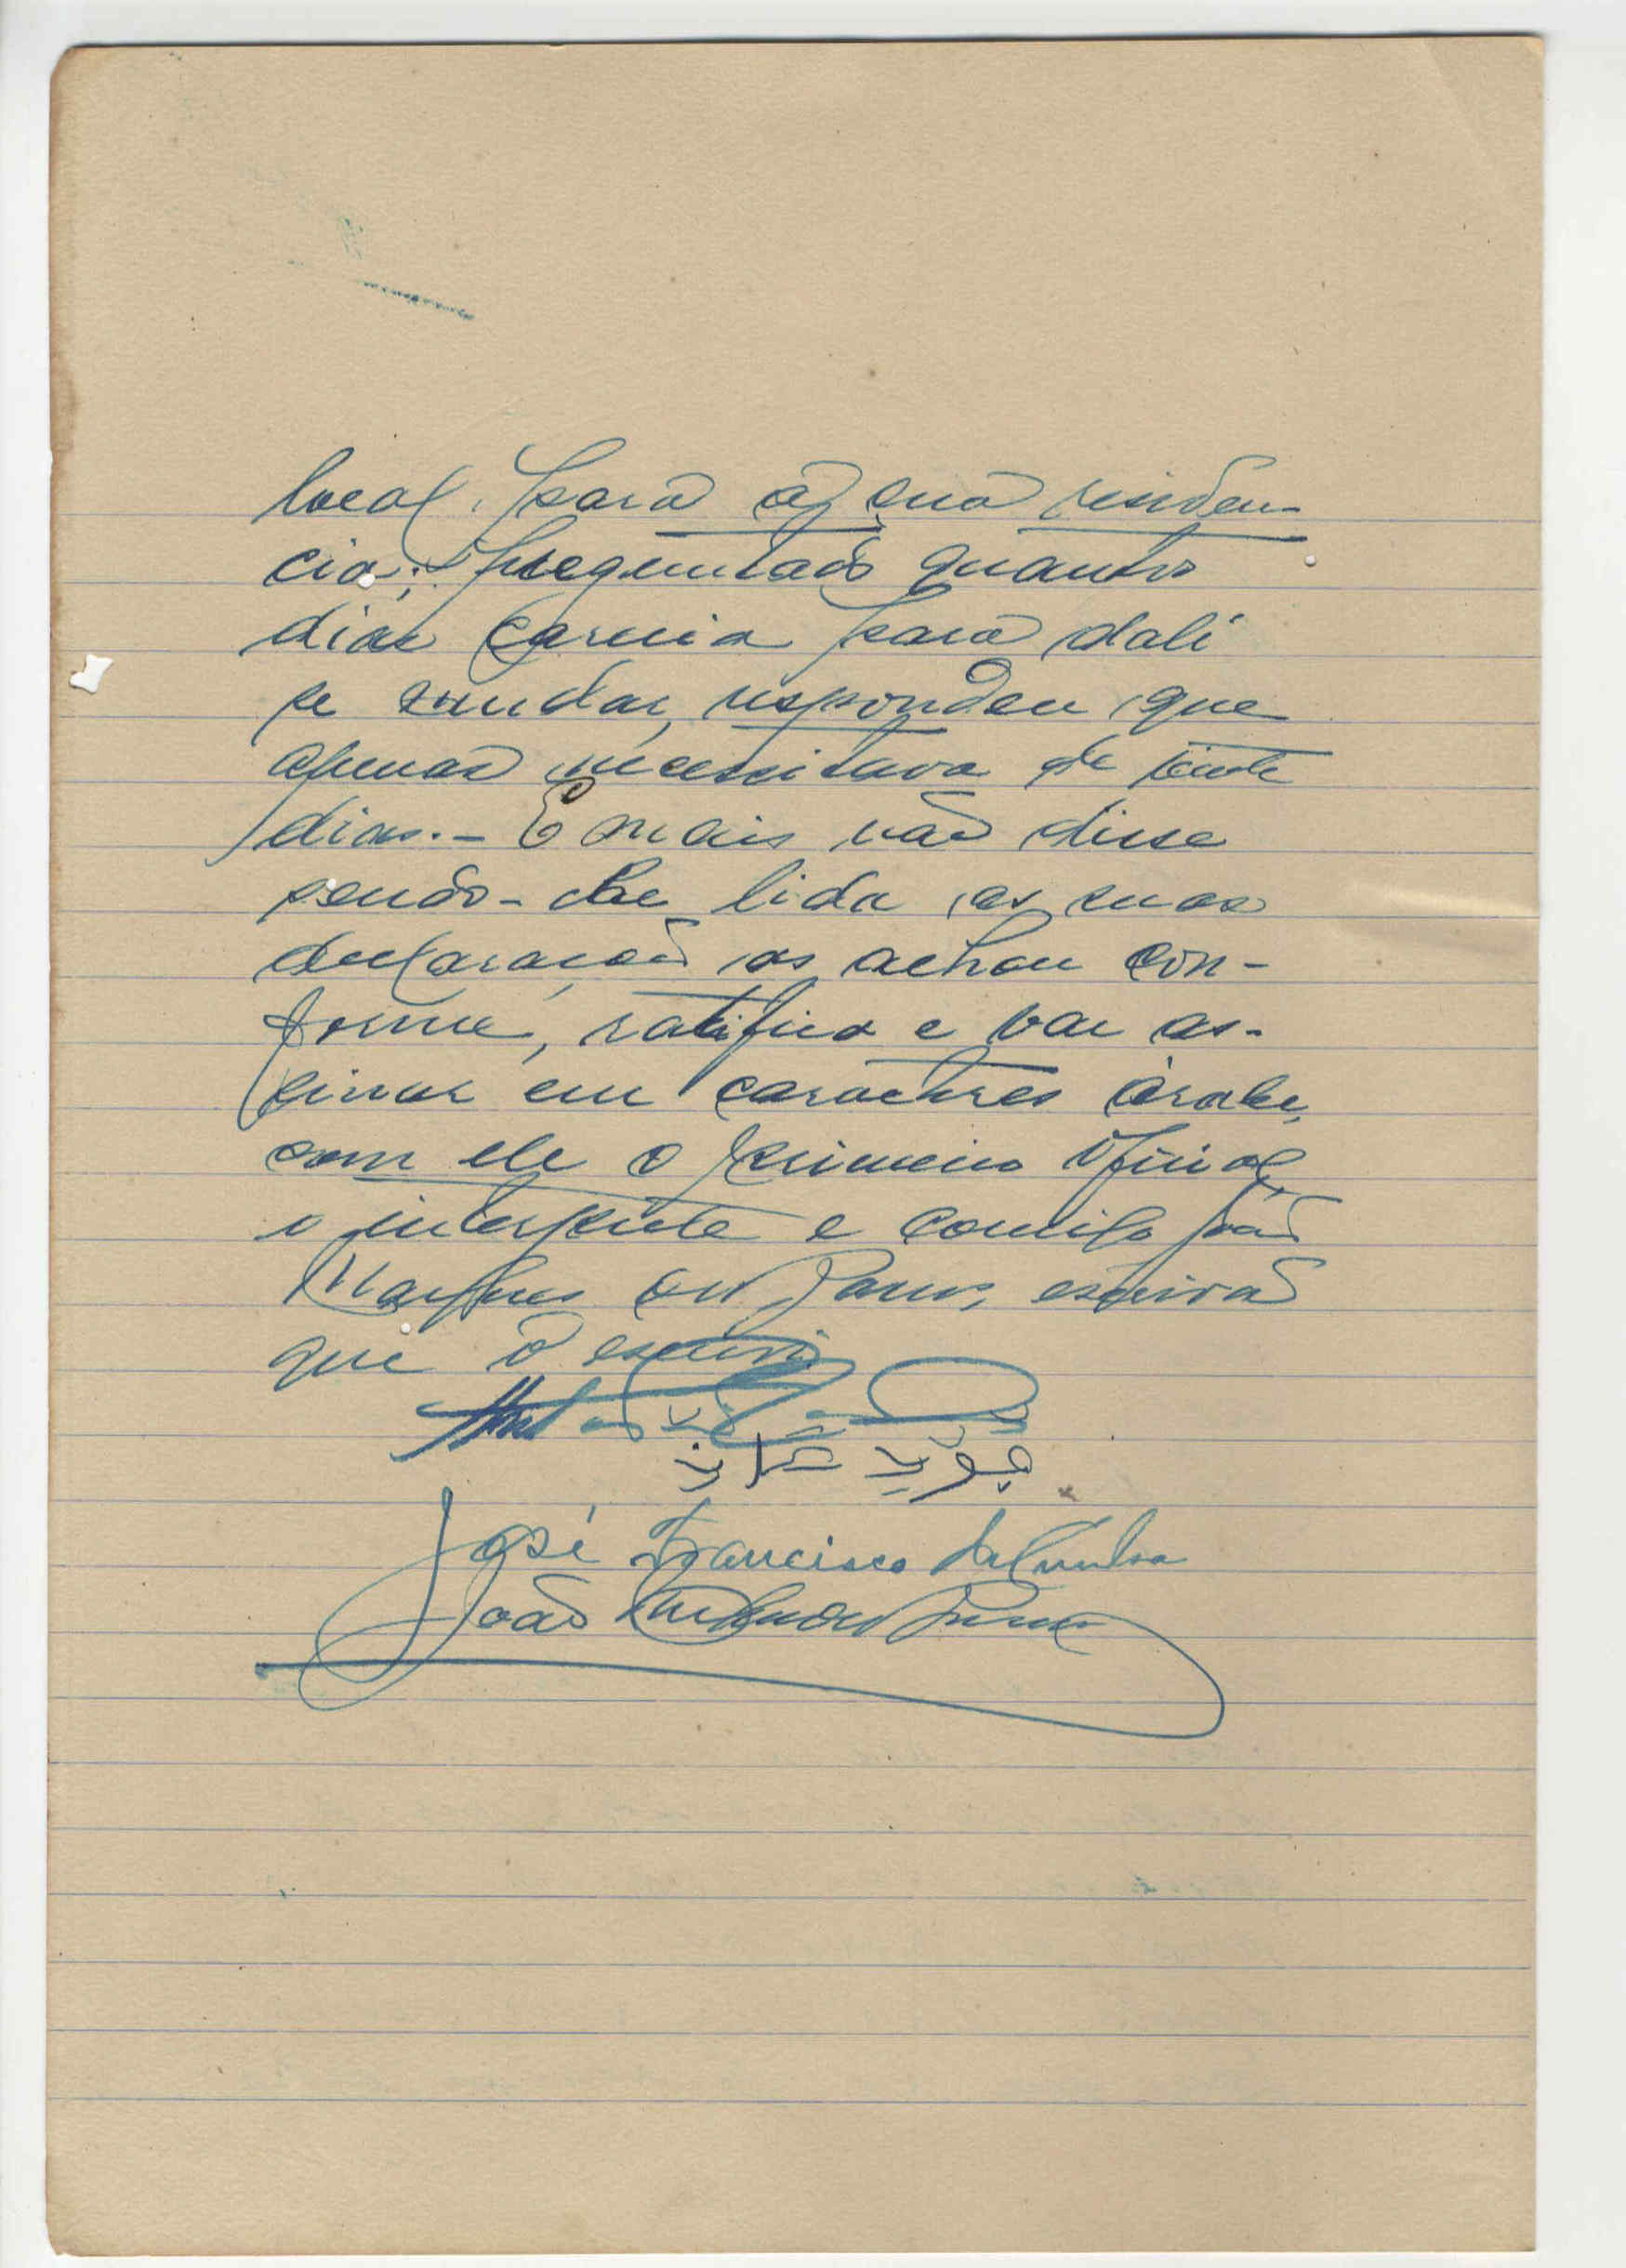 local para a sua residen-
cia; preguntado quantos
dias carecia para dali
se mudar, respondeu que
apenas necessitava de vinte
dias.- E mais não disse
sendo-lhe lida as suas
declarações as achou con-
forme, ratifica e vai as-
sinar em caracteres árabes,
com ele o primeiro oficial,
o interprete e comigo João
que o escrevi
José Francisco da Cunha
João